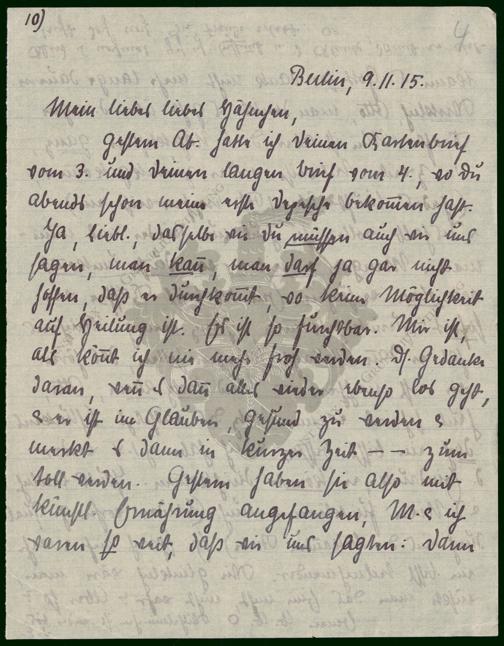 10)
4
Berlin, 9.11.15.
Mein liebes liebes Häschen,
gestern Ab. hatte ich deinen Kartenbrief
vom 3. und deinen langen Brief vom 4., wo du
abends schon meine erste Depesche bekommen hast.
Ja, Liebl., dasselbe wie du müssen auch wir uns
sagen, man kann, man darf ja gar nicht
hoffen, daß er durchkommt, wo keine Möglichkeit
auf Heilung ist. Es ist so furchtbar. Mir ist,
als könnt ich nie mehr froh werden. d. Gedanke
daran, wenn dann alles wieder ebenso los geht,
& er ist im Glauben gesund zu werden &
merkt dann in kurzer Zeit -- zum
toll werden. Gestern haben sie also mit
künstl. Ernährung angefangen, M. & ich
waren so weit, daß wir uns sagten: dann